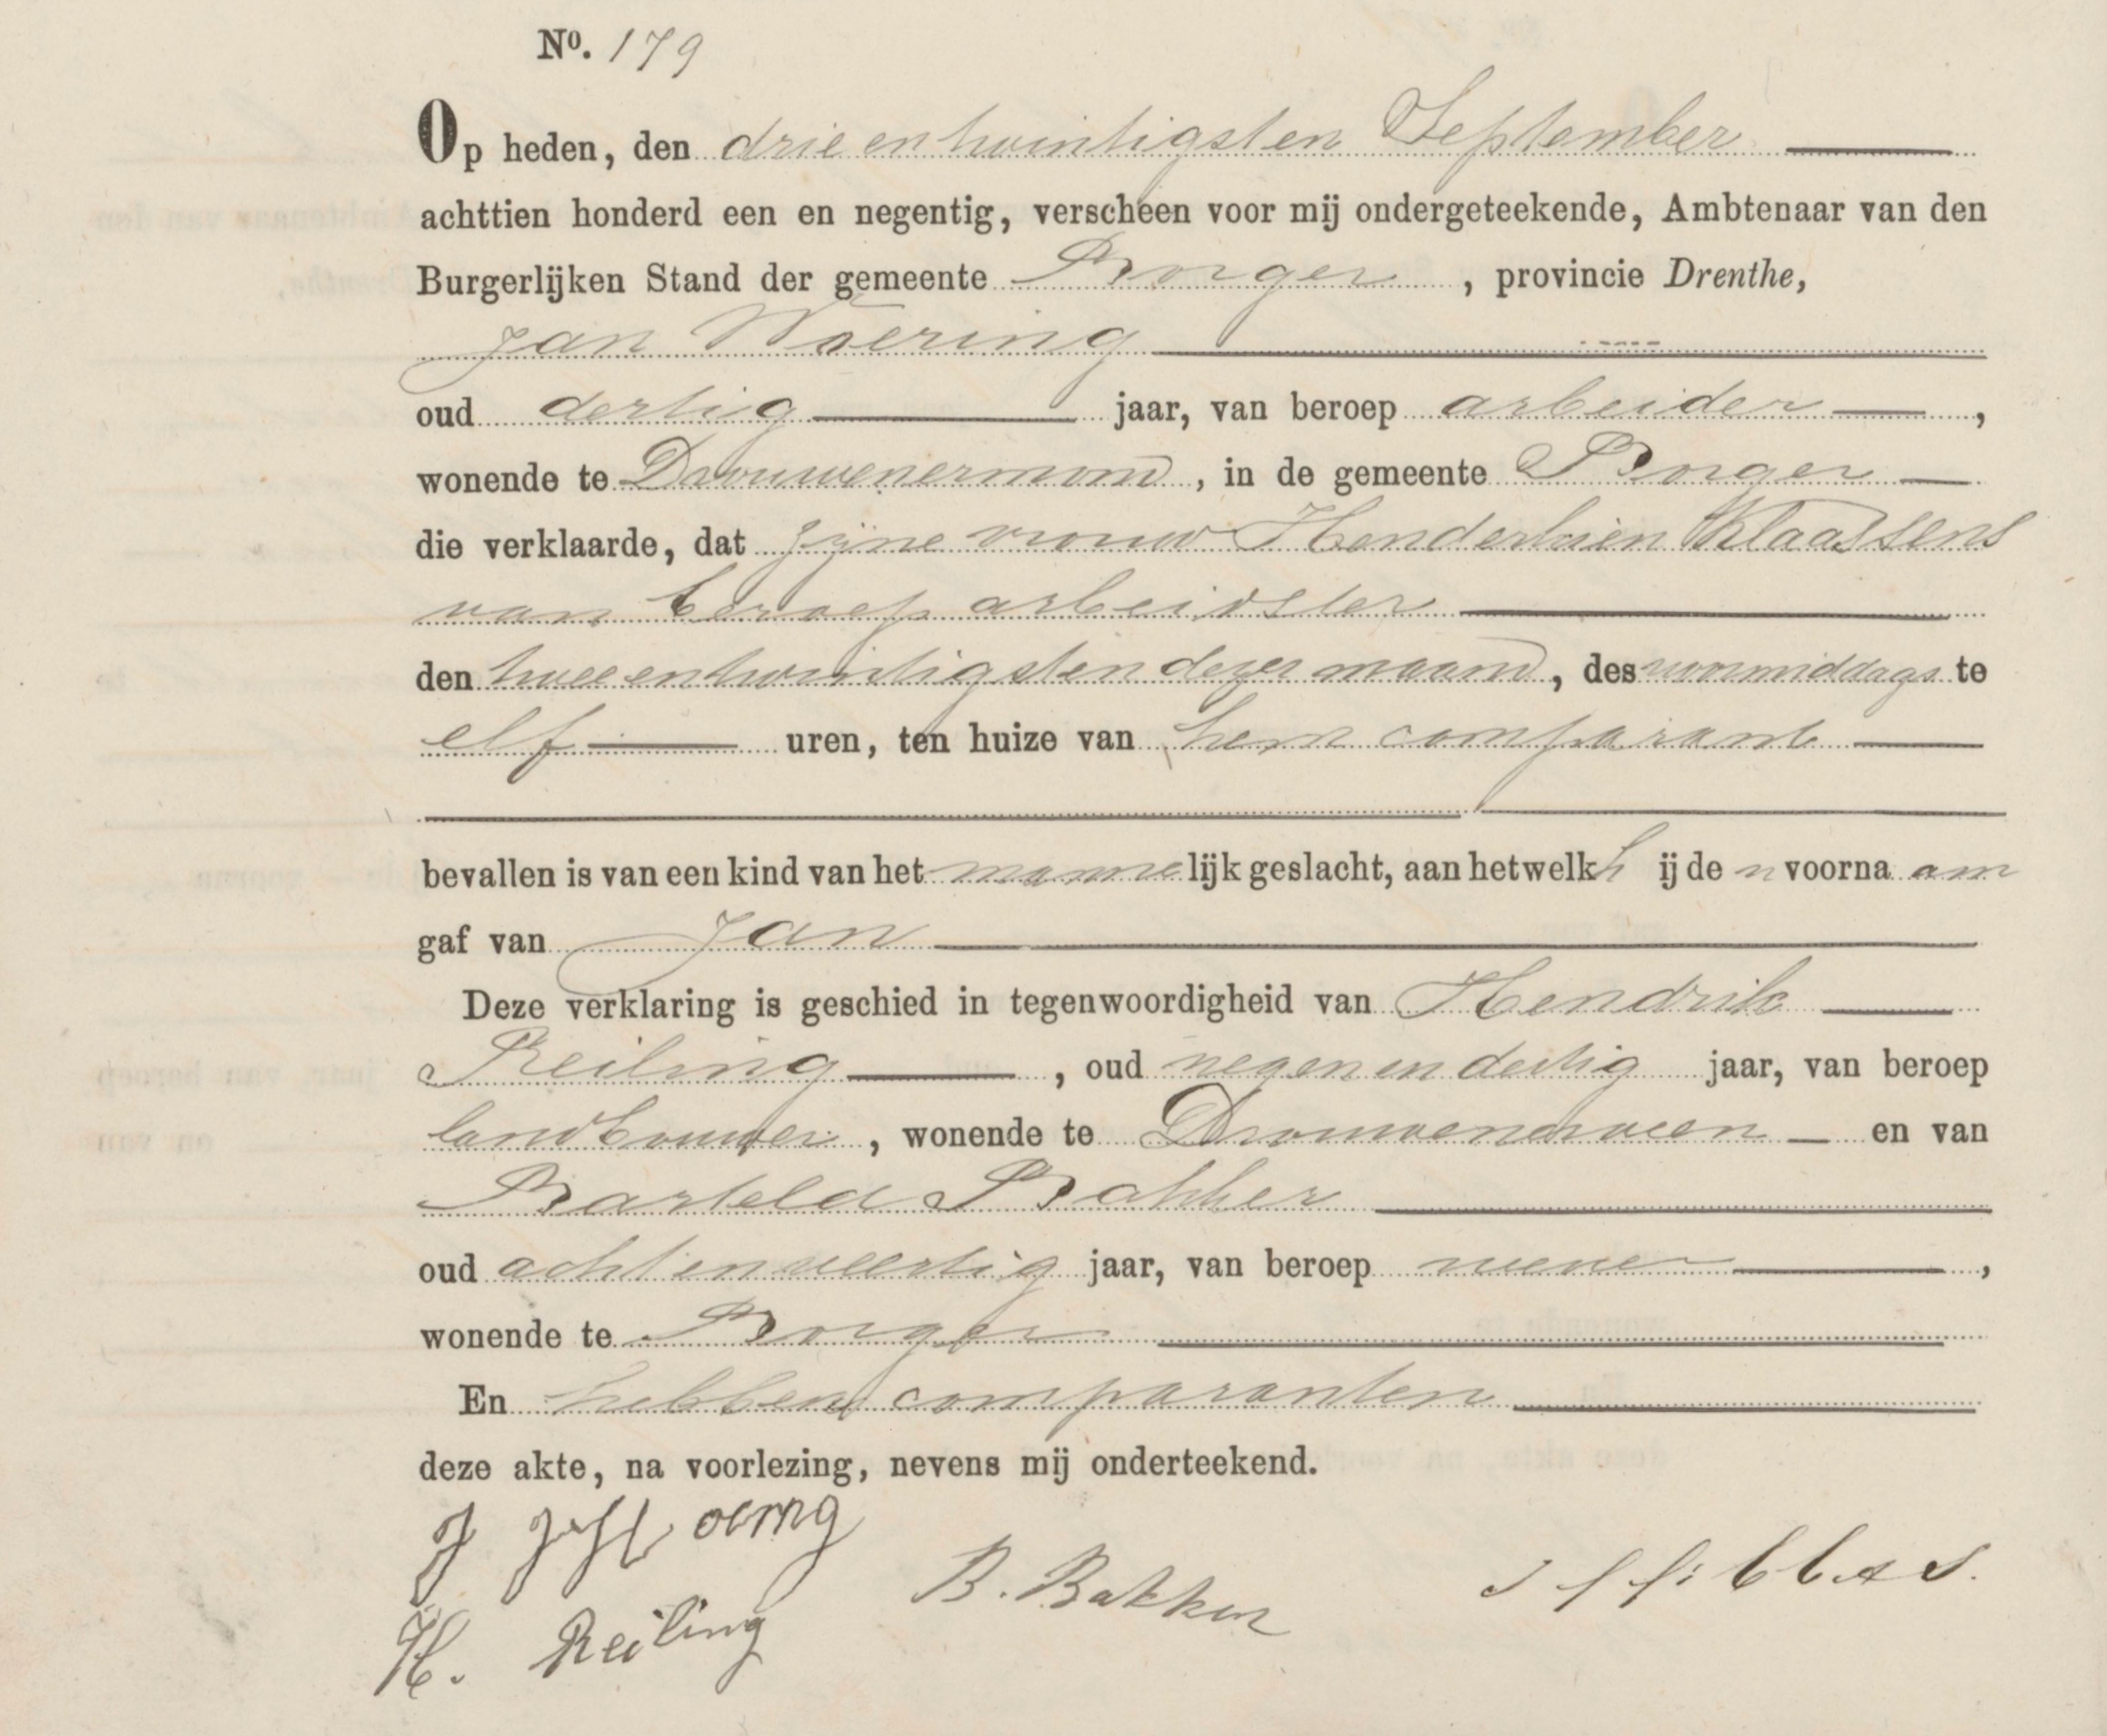 No. 179
Op heden, den drie en twintigsten September
achttien honderd een en negentig, verscheen voor mij ondergeteekende, Ambtenaar van den
Burgerlijken Stand der gemeente Borger, provincie Drenthe,
Jan Woering
oud dertig jaar, van beroep arbeider,
wonende te Drouwenermond, in de gemeente Borger
die verklaarde, dat zijne vrouw Henderkien Klaassens
van beroep arbeidster
den twee en twintigsten dezer maand, des voormiddags te
elf uren, ten huize van hem comparant
bevallen is van een kind van het mannelijk geslacht, aan hetwelk hij den voornaam
gaf van Jan
Deze verklaring is geschied in tegenwoordigheid van Hendrik
Reiling, oud negen en dertig jaar, van beroep
landbouwer, wonende te Drouwenerveen en van
Barteld Bakker
oud acht en veertig jaar, van beroep wever,
wonende te Borger
En hebben comparanten
deze akte, na voorlezing, nevens mij onderteekend.
H. Reiling B. Bakker